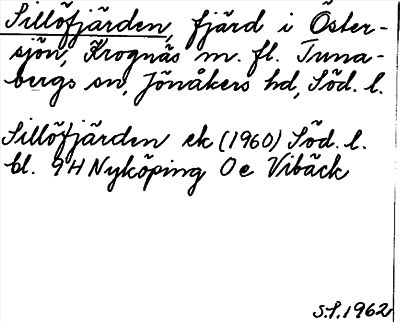 Sillöfjärden, fjärd i Öster-
sjön, Krognäs m. fl. Tuna-
bergs sn, Jönåkers hd, Söd. l.
Sillöfjärden ek (1960) Söd. l.
bl. 9H Nyköping Oe Vibäck
S.S. 1962